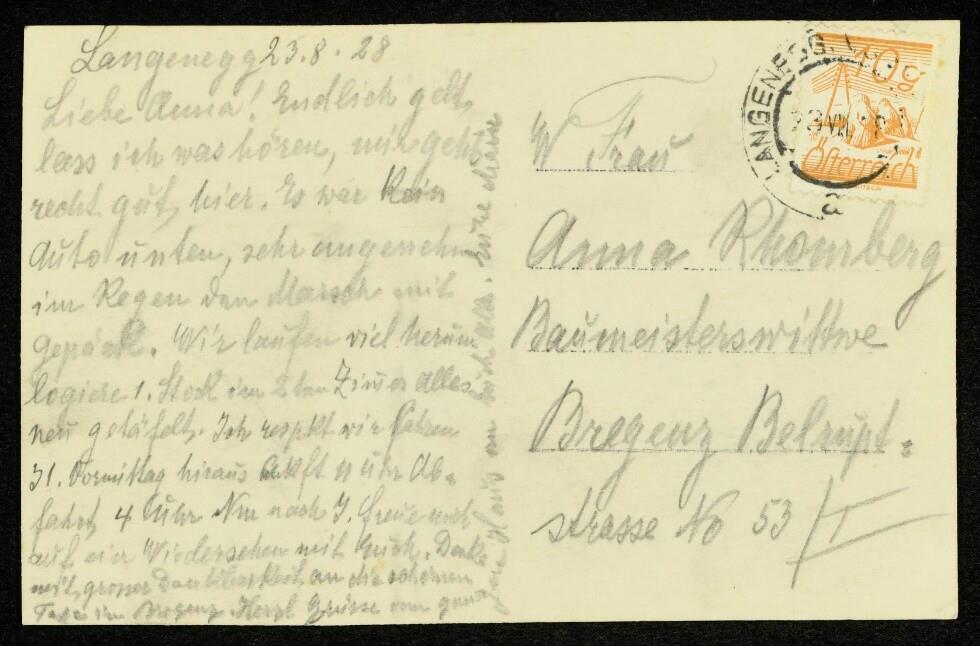 Langenegg 23.8.28
Liebe Anna! Endlich gelt,
lass ich was hören, mir geht
recht gut, hier. Es war kein
Auto unten, sehr angenehm
im Regen den Marsch mit
Gepäck. Wir laufen viel herum
logiere 1. Stock im 2ten Zimer alles
neu getäfelt. Ich respkt wir fahren
31. Vormittag hinaus Ankft 11 Uhr Ab-
fahrt 4 Uhr Nm nach I. freue mich
auf ein Wiedersehen mit Euch. Denke
mit grosser Dankbarkeit an die schönen
Tage in Bregenz. Herzl Grüsse vom ganzen
Haus an Euch alle. Eure
W Frau
Anna Rhomberg
Baumeisterswittwe
Bregenz Belrupt-
strasse No 53/I
10g
Österreich
LANGENEGG